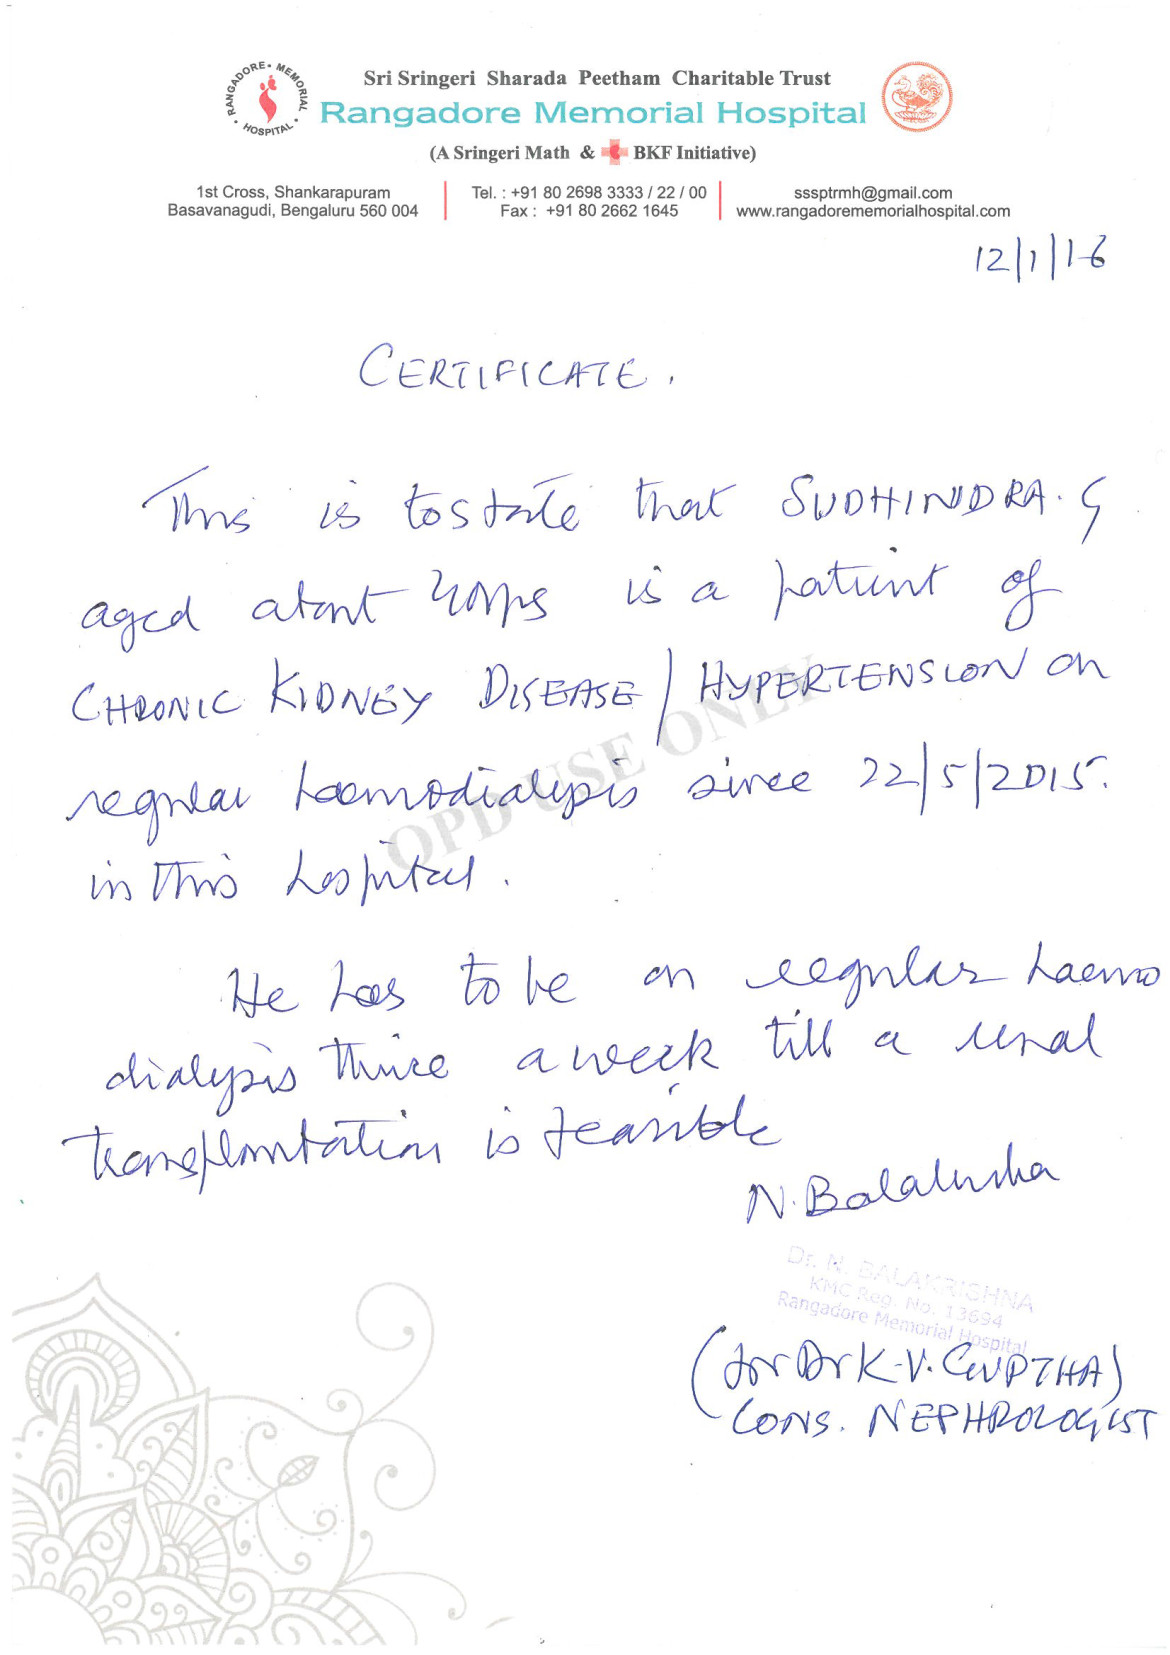 RANGADORE • MEMORIAL • HOSPITAL •
Sri Sringeri Sharada Peetham Charitable Trust
Rangadore Memorial Hospital
(A Sringeri Math & BKF Initiative)
1st Cross, Shankarapuram
Basavanagudi, Bengaluru 560 004
Tel. : +91 80 2698 3333 / 22 / 00
Fax : +91 80 2662 1645
sssptrmh@gmail.com
www.rangadorememorialhospital.com
12/1/16
CERTIFICATE.
This is to state that SUDHINDRA. G
aged about 40yrs is a patient of
CHRONIC KIDNEY DISEASE / HYPERTENSION on
regular haemodialysis since 22/5/2015.
in this hospital.
OPD USE ONLY
He has to be on regular haemo
dialysis thrice a week till a renal
transplantation is feasible
N. Balakrishna
Dr. N. BALAKRISHNA
KMC Reg. No. 13694
Rangadore Memorial Hospital
(for Dr K.V. GUPTHA)
CONS. NEPHROLOGIST